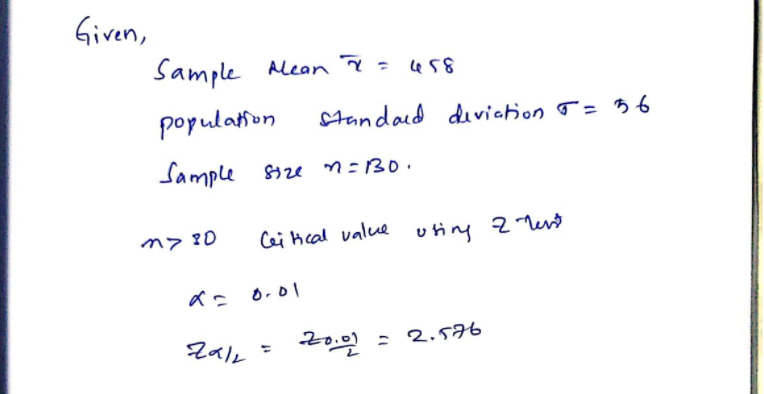 Given,
Sample Mean x̄ = 458
population standard deviation σ = 36
Sample size n = 130.
n > 30 Critical value using Z test
α = 0.01
Zα/2 = Z0.01/2 = 2.576